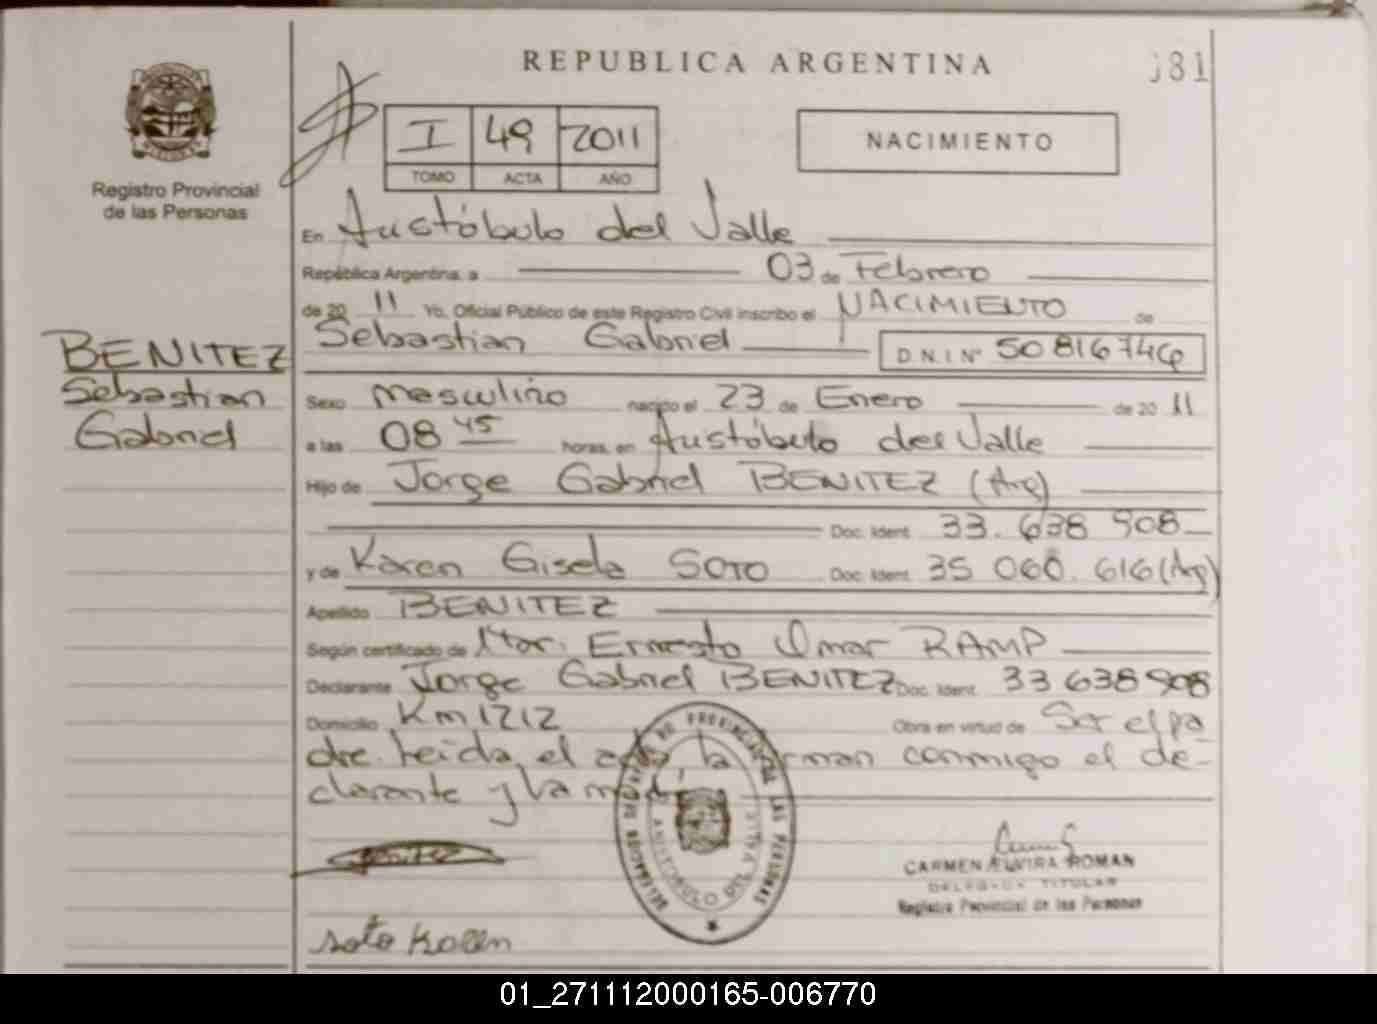 REPUBLICA ARGENTINA
081
Registro Provincial
de las Personas
I 49 2011
TOMO ACTA AÑO
NACIMIENTO
En Aristóbulo del Valle
República Argentina, a 03 de Febrero
de 20 11 Yo, Oficial Público de este Registro Civil inscribo el NACIMIENTO de
Sebastian Gabriel D.N.I Nº 50816746
BENITEZ
Sebastian
Gabriel
Sexo masculino nacido el 23 de Enero de 20 11
a las 08 45 horas, en Aristóbulo del Valle
Hijo de Jorge Gabriel BENITEZ (Arg)
Doc. Ident. 33.638 908
y de Karen Gisela SOTO Doc. Ident. 35 060.616 (Arg)
Apellido BENITEZ
Según certificado de Ernesto Omar RAMP
Declarante Jorge Gabriel BENITEZ Doc. Ident. 33 638 908
Domicilio Km 1212 Obra en virtud de Ser el pa
dre. Leida el acta la firman conmigo el de-
clarante y la madre
DE PROVINCIAL DE LAS PERSONAS
ARISTOBULO DEL VALLE
Benitez
CARMEN ELVIRA ROMAN
DELEGADA TITULAR
Registro Provincial de las Personas
soto Karen
01_271112000165-006770